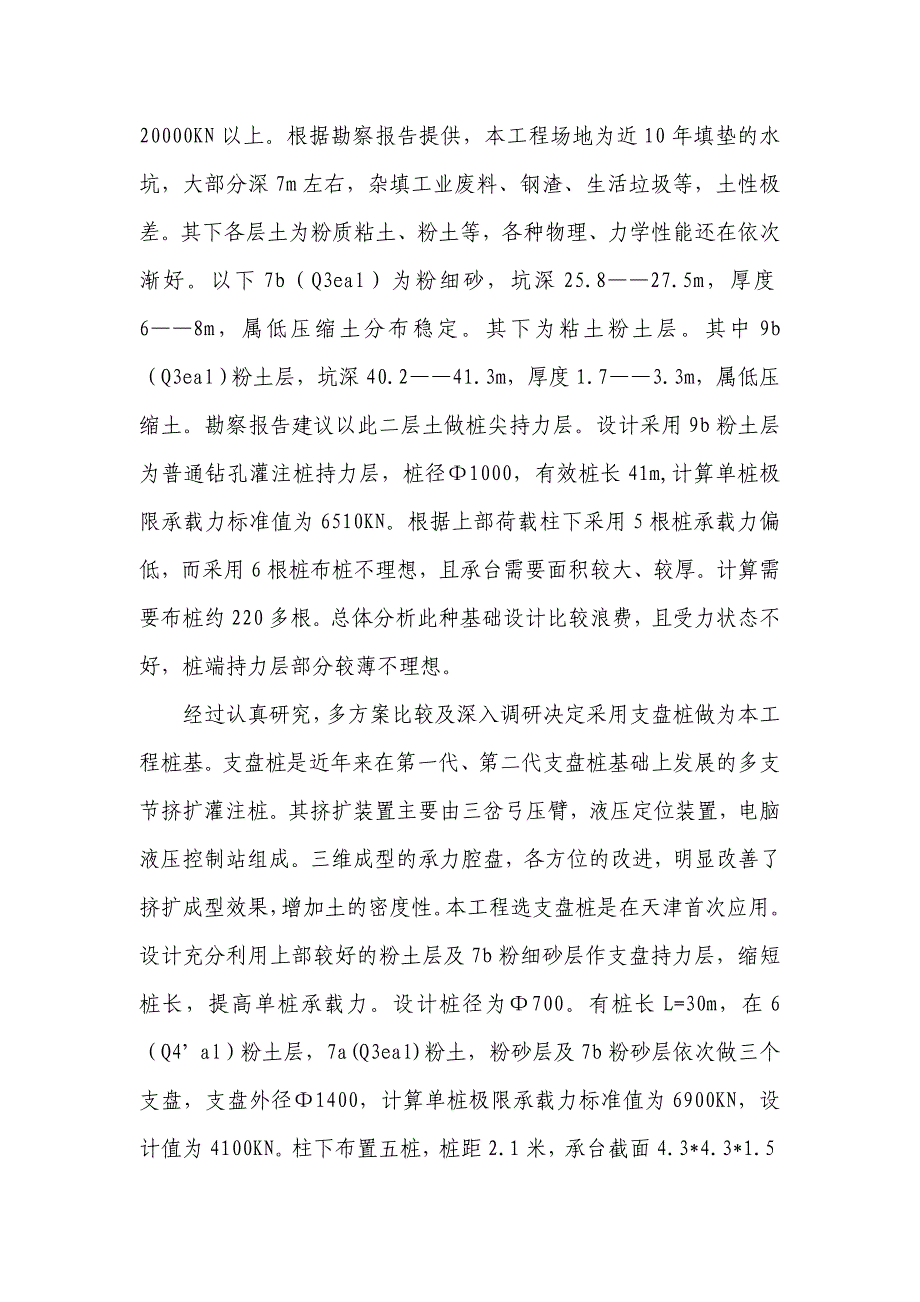 20000KN 以上。根据勘察报告提供，本工程场地为近 10 年填垫的水
坑，大部分深 7m 左右，杂填工业废料、钢渣、生活垃圾等，土性极
差。其下各层土为粉质粘土、粉土等，各种物理、力学性能还在依次
渐好。以下 7b（Q3eal）为粉细砂，坑深 25.8——27.5m，厚度
6——8m，属低压缩土分布稳定。其下为粘土粉土层。其中 9b
（Q3eal)粉土层，坑深 40.2——41.3m，厚度 1.7——3.3m，属低压
缩土。勘察报告建议以此二层土做桩尖持力层。设计采用 9b 粉土层
为普通钻孔灌注桩持力层，桩径Φ1000，有效桩长 41m,计算单桩极
限承载力标准值为 6510KN。根据上部荷载柱下采用 5 根桩承载力偏
低，而采用 6 根桩布桩不理想，且承台需要面积较大、较厚。计算需
要布桩约 220 多根。总体分析此种基础设计比较浪费，且受力状态不
好，桩端持力层部分较薄不理想。
经过认真研究，多方案比较及深入调研决定采用支盘桩做为本工
程桩基。支盘桩是近年来在第一代、第二代支盘桩基础上发展的多支
节挤扩灌注桩。其挤扩装置主要由三岔弓压臂，液压定位装置，电脑
液压控制站组成。三维成型的承力腔盘，各方位的改进，明显改善了
挤扩成型效果，增加土的密度性。本工程选支盘桩是在天津首次应用。
设计充分利用上部较好的粉土层及 7b 粉细砂层作支盘持力层，缩短
桩长，提高单桩承载力。设计桩径为Φ700。有桩长 L=30m，在 6
（Q4’al)粉土层，7a(Q3eal)粉土，粉砂层及 7b 粉砂层依次做三个
支盘，支盘外径Φ1400，计算单桩极限承载力标准值为 6900KN，设
计值为 4100KN。柱下布置五桩，桩距 2.1 米，承台截面 4.3*4.3*1.5